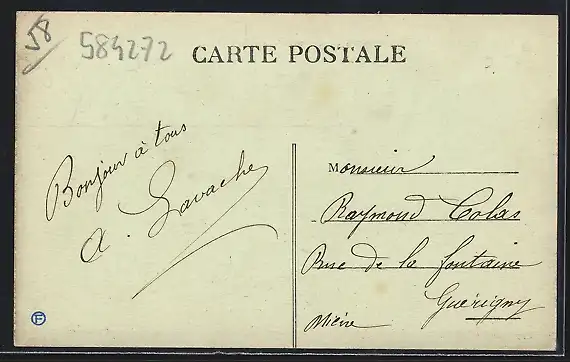 58
584272
CARTE POSTALE
Bonjour à tous
A. Lavache
Monsieur
Raymond Colas
Rue de la fontaine
Guérigny
Nièvre